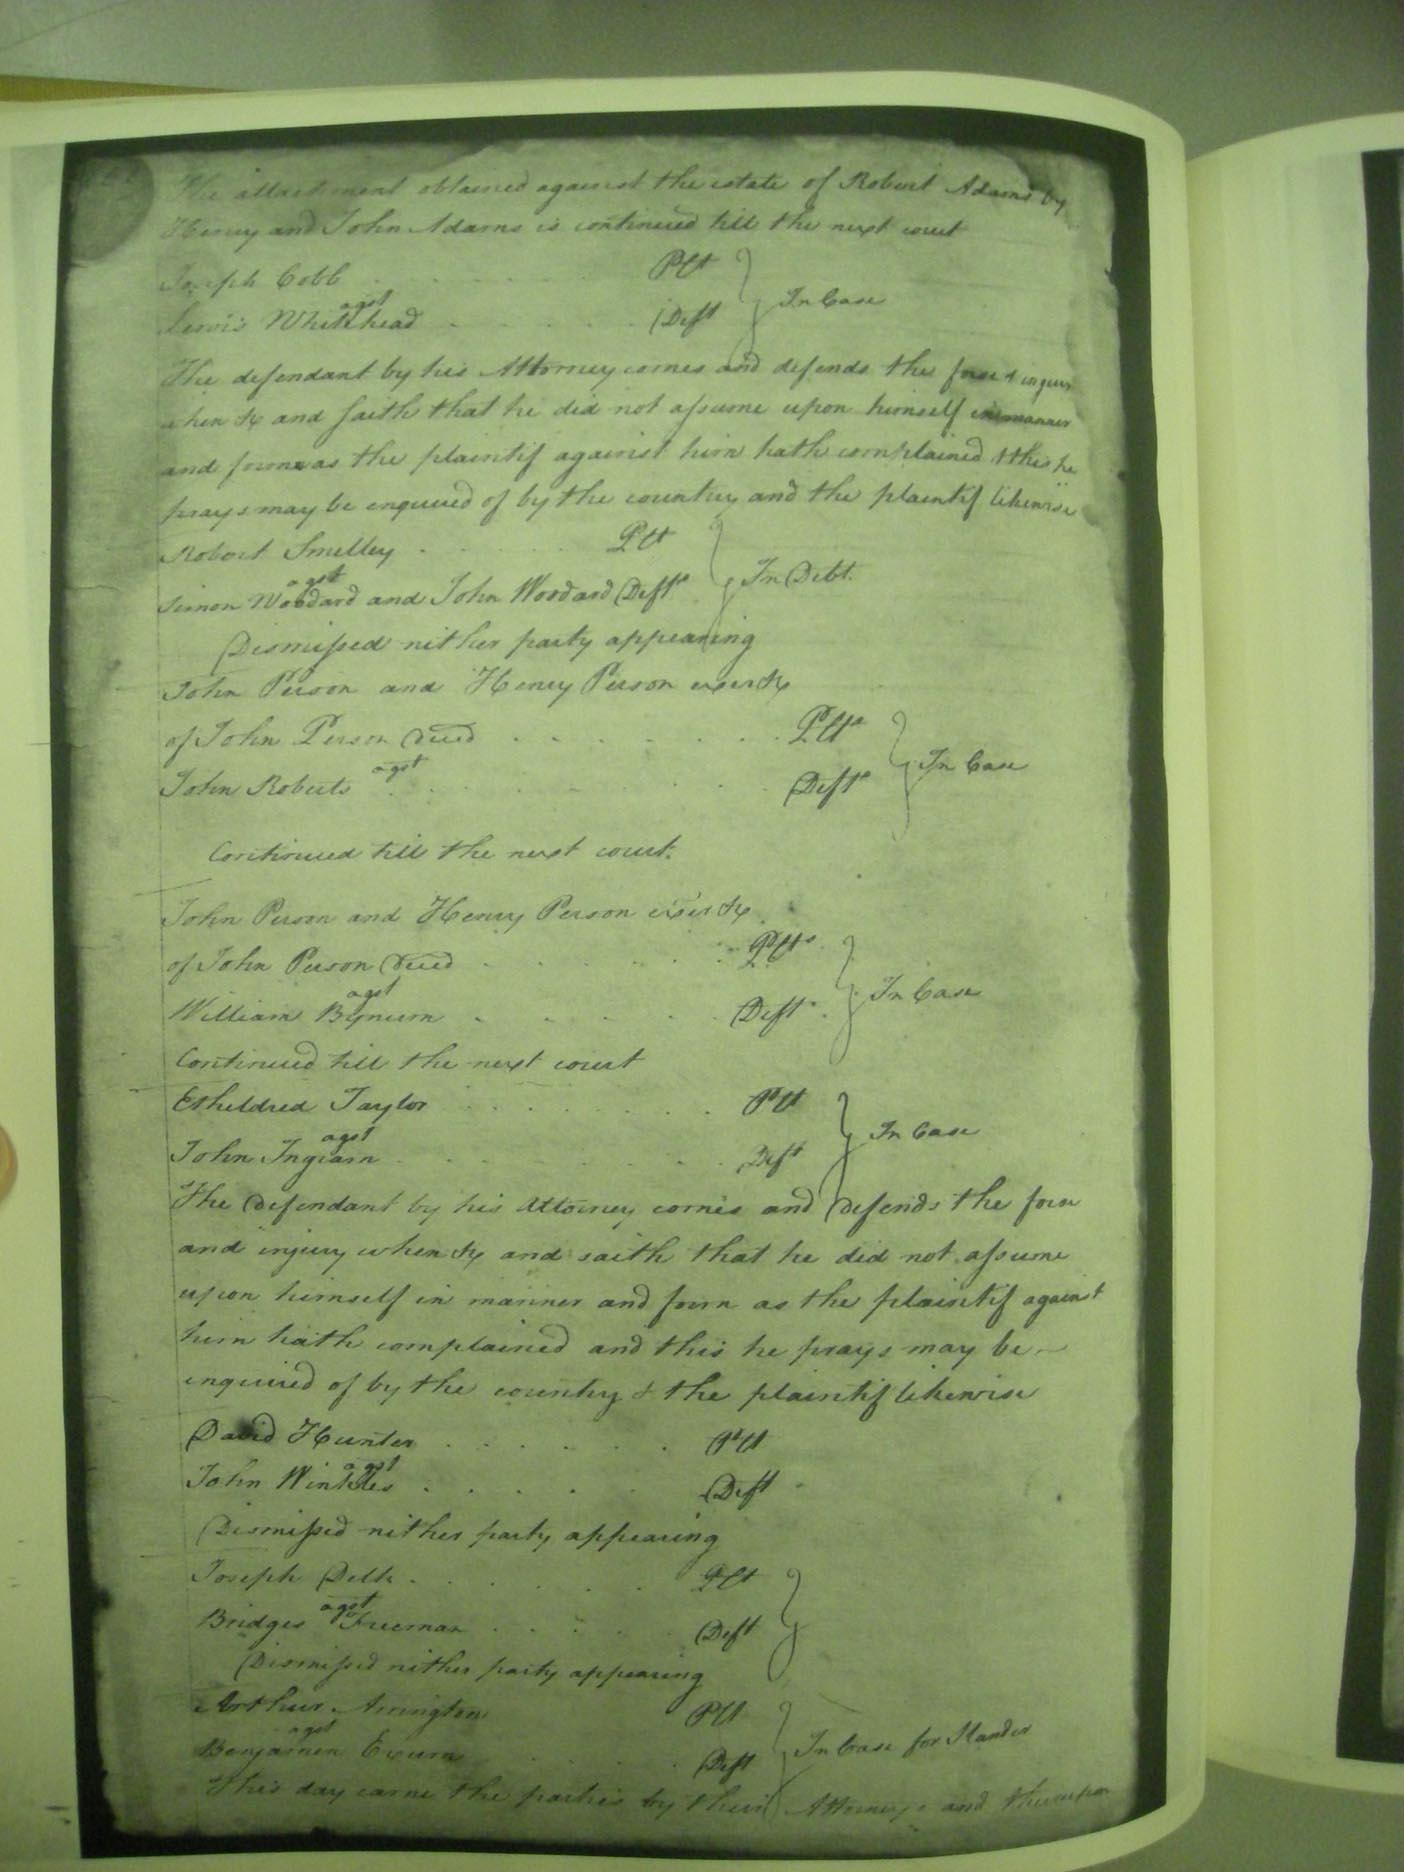 The attachment obtained against the estate of Robert Adams by
Henry and John Adams is continued till the next court
Joseph Cobb . . . . . . Plt
agst } In Case
Lewis Whitehead . . . . . Deft
The defendant by his Attorney comes and defends the force & injury
when &c and saith that he did not assume upon himself in manner
and form as the plaintif against him hath complained & this he
prays may be enquired of by the country and the plaintif likewise
Robert Smelley . . . . Plt
agst } In Debt.
Simon Woodard and John Woodard Defts
Dismissed nither party appearing
John Person and Henry Person exers &c
of John Person Decd . . . . . . . Plts
agst } In Case
John Roberts . . . . . . . Deft
Continued till the next court.
John Person and Henry Person exers &c
of John Person Decd . . . . . . Plts
agst } In Case
William Bynum . . . . . Deft
Continued till the next court
Etheldred Taylor . . . . . . . Plt
agst } In Case
John Ingram . . . . . . . Deft
The Defendant by his Attorney comes and Defends the force
and injury when &c and saith that he did not assume
upon himself in manner and form as the plaintif against
him hath complained and this he prays may be
enquired of by the country & the plaintif likewise
David Hunter . . . . . . Plt
agst
John Winkles . . . . . Deft
Dismissed nither party appearing
Joseph Delk . . . . . . Plt
agst }
Bridges Freeman . . . . . Deft
Dismissed nither party appearing
Arthur Arrington Plt
agst } In Case for Slander
Benjamen Exum . . . . Deft
This day came the parties by their Attorneys and thereupon